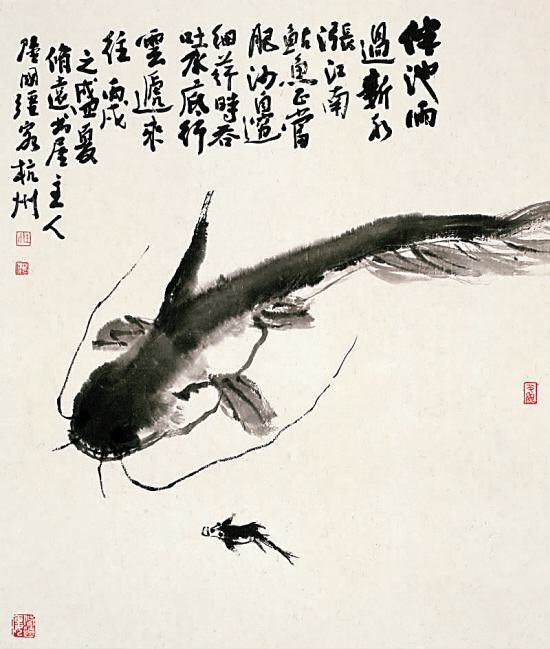 池雨
過新水
漲江南
鮎魚正當
肥沙邊
細荇時吞
吐水底行
雲遞來
往 丙戌
之盛夏
脩遠書屋主人
陸國強客杭州